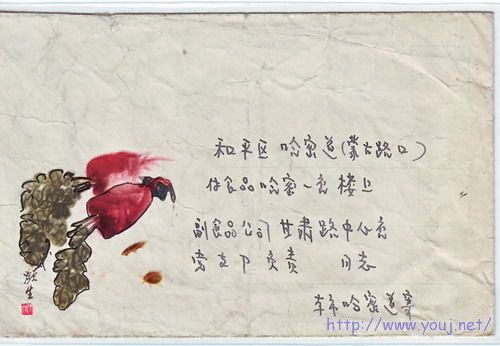 和平区 哈密道(蒙古路口)
付食品哈密一店 楼上
副食品公司 甘肃路中心店
党支 负责 同志
本市哈密道寄
http://www.youj.net/